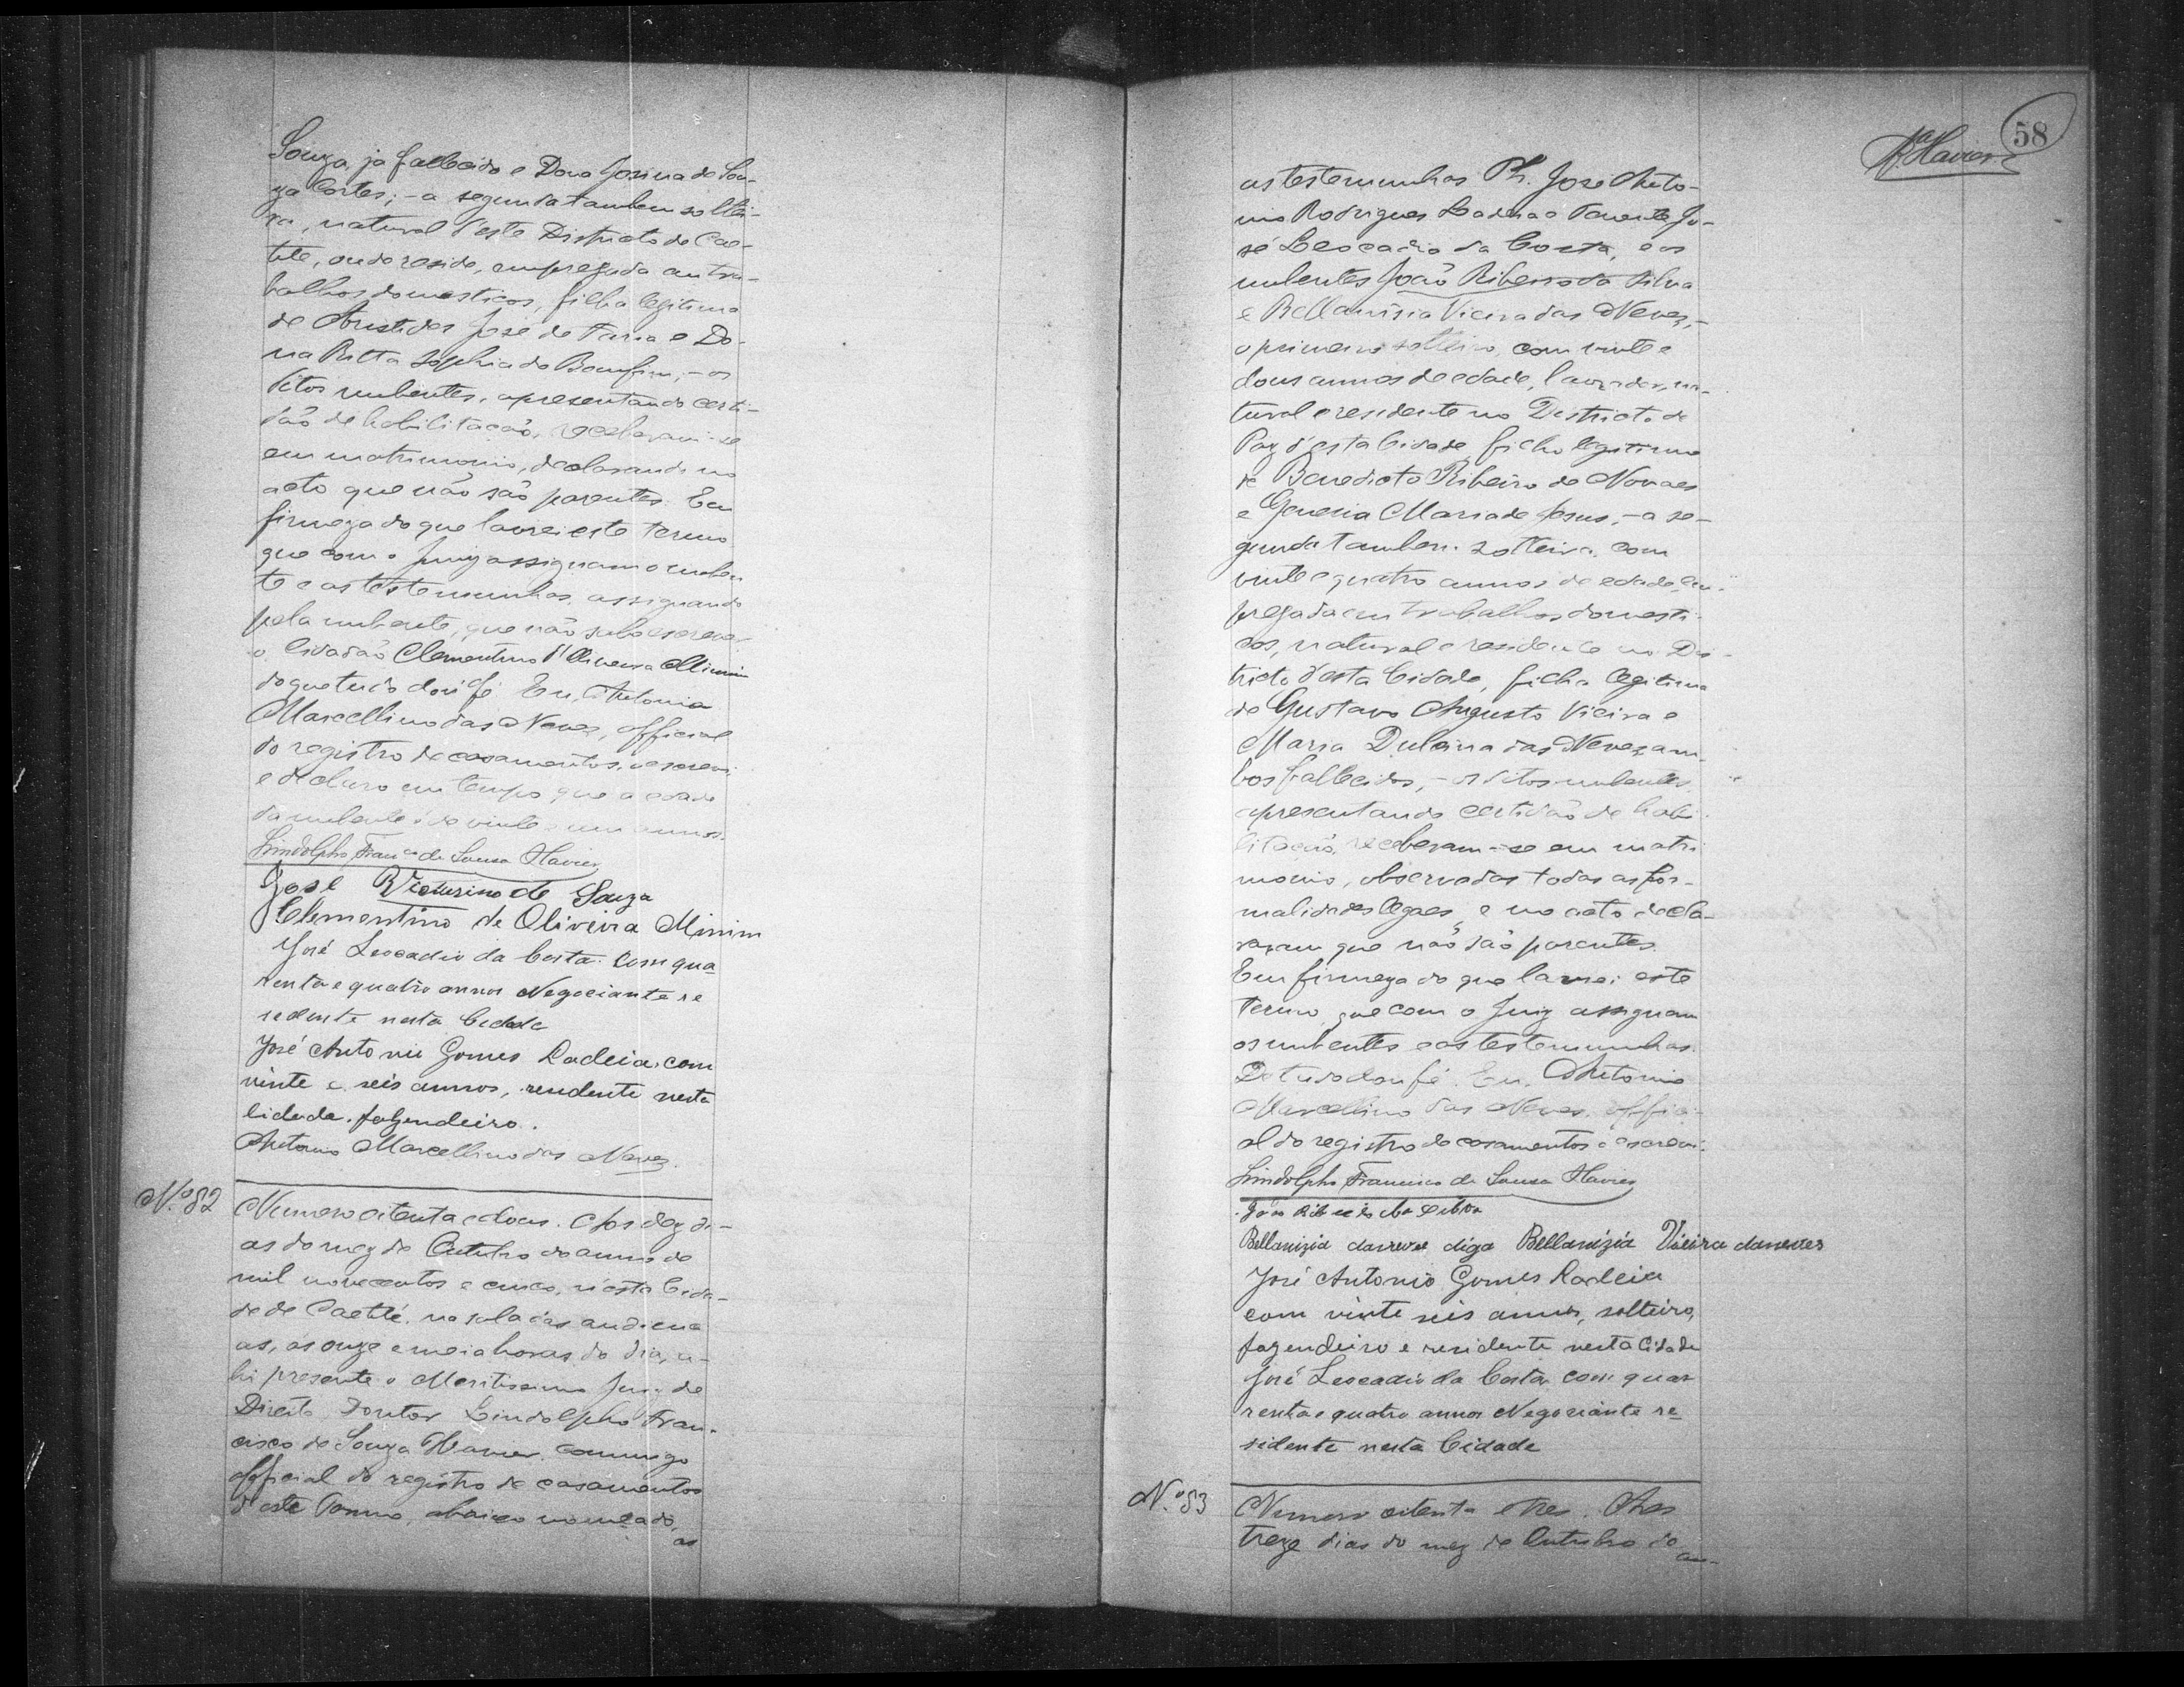 Souza, já fallecido e Dona Josina de Sou-
za Cortes; - a segunda tambem soltei-
ra, natural d'este Districto de Cae-
tité, onde reside, empregada em tra-
balhos domesticos, filha legitima
de Aristides José de Faria e Do-
na Ritta Sophia do Bomfim; - os
ditos nubentes, apresentando certi-
dão de habilitação, receberam-se
em matrimonio, declarando no
acto que não são parentes. Em
firmeza do que lavrei este termo
que com o Juiz assignam o nuben
te e as testemunhas, assignando
pela nubente, que não sabe escrever
o Cidadão Clementino d'Oliveira Minim
do que tudo dou fé. Eu, Antonio
Marcellino das Neves, official
do registro de casamentos, o escrevi
e declaro em tempo que a edade
da nubente é de vinte e um annos.
Lindolpho Franco de Sousa Havier
José Victurino de Souza
Clementino de Oliveira Minim
José Leocadio da Costa. com qua
renta e quatro annos Negociante re
sedente nesta Cedade
José Antonio Gomes Ladeia, com
vinte e seis annos, resedente nesta
cidade, fazendeiro.
Antonio Marcellino das Neves.
Nº 82
Numero oitenta e dous. Aos dez di-
as do mez de Outubro do anno de
mil novecentos e cinco, n'esta Cida-
de de Caetité, na sala das audienci
as, ás onze e meia horas do dia, a-
hi presente o Meritissimo Juiz de
Direito, Doutor Lindolpho Fran-
cisco de Souza Havier, commigo
official do registro de casamentos
d'este Termo, abaixo nomeado,
as
58
Havier
as testemunhas Ph. José Anto-
nio Rodrigues Ladeia e Tenente Jo-
sé Leocadio da Costa, e os
nubentes João Ribeiro da Silva
e Bellanisia Vieira das Neves, -
o primeiro solteiro, com vinte e
dous annos de edade, lavrador, na-
tural e residente no Districto de
Paz d'esta Cidade, filho legitimo
de Benedicto Ribeiro de Novaes
e Generia Maria de Jesus; - a se-
gunda tambem solteira, com
vinte e quatro annos de edade, em-
pregada em trabalhos domesti-
cos, natural e residente no Dis-
tricto d'esta Cidade, filha legitima
de Gustavo Augusto Vieira e
Maria Dulcina das Neves, am-
bos fallecidos, - os ditos nubentes,
apresentando certidão de habi-
litação, receberam-se em matri
monio, observadas todas as for-
malidades legaes, e no acto decla-
raram que não são parentes.
Em firmeza do que lavrei este
termo, que com o Juiz assignam
os nubentes e as testemunhas.
De tudo dou fé. Eu, Antonio
Marcellino das Neves, offici-
al do registro de casamentos o escrevi.
Lindolpho Francisco de Sousa Havier
João Ribeiro da Silva
Bellanizia dasneves diga Bellanizia Vieira danesves
José Antonio Gomes Ladeia
com vinte seis annos, solteiro,
fazendeiro e residente nesta Cidade
José Leocadio da Costa com qua
renta e quatro annos Negociante re
sidente nesta Cidade
Nº 83
Numero oitenta e tres. Aos
treze dias do mez de Outubro do
an-